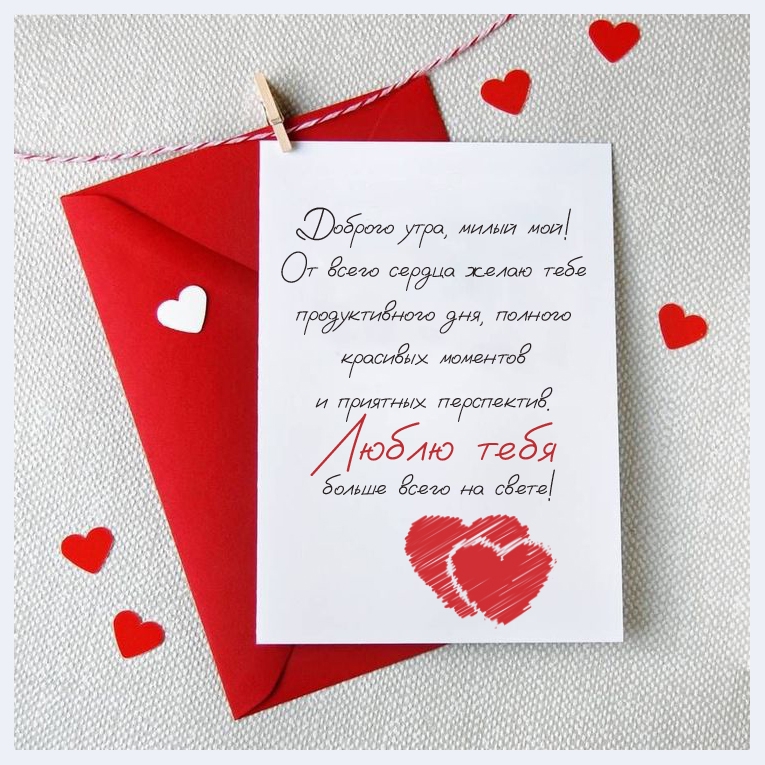 Доброго утра, милый мой!
От всего сердца желаю тебе
продуктивного дня, полного
красивых моментов
и приятных перспектив.
Люблю тебя
больше всего на свете!